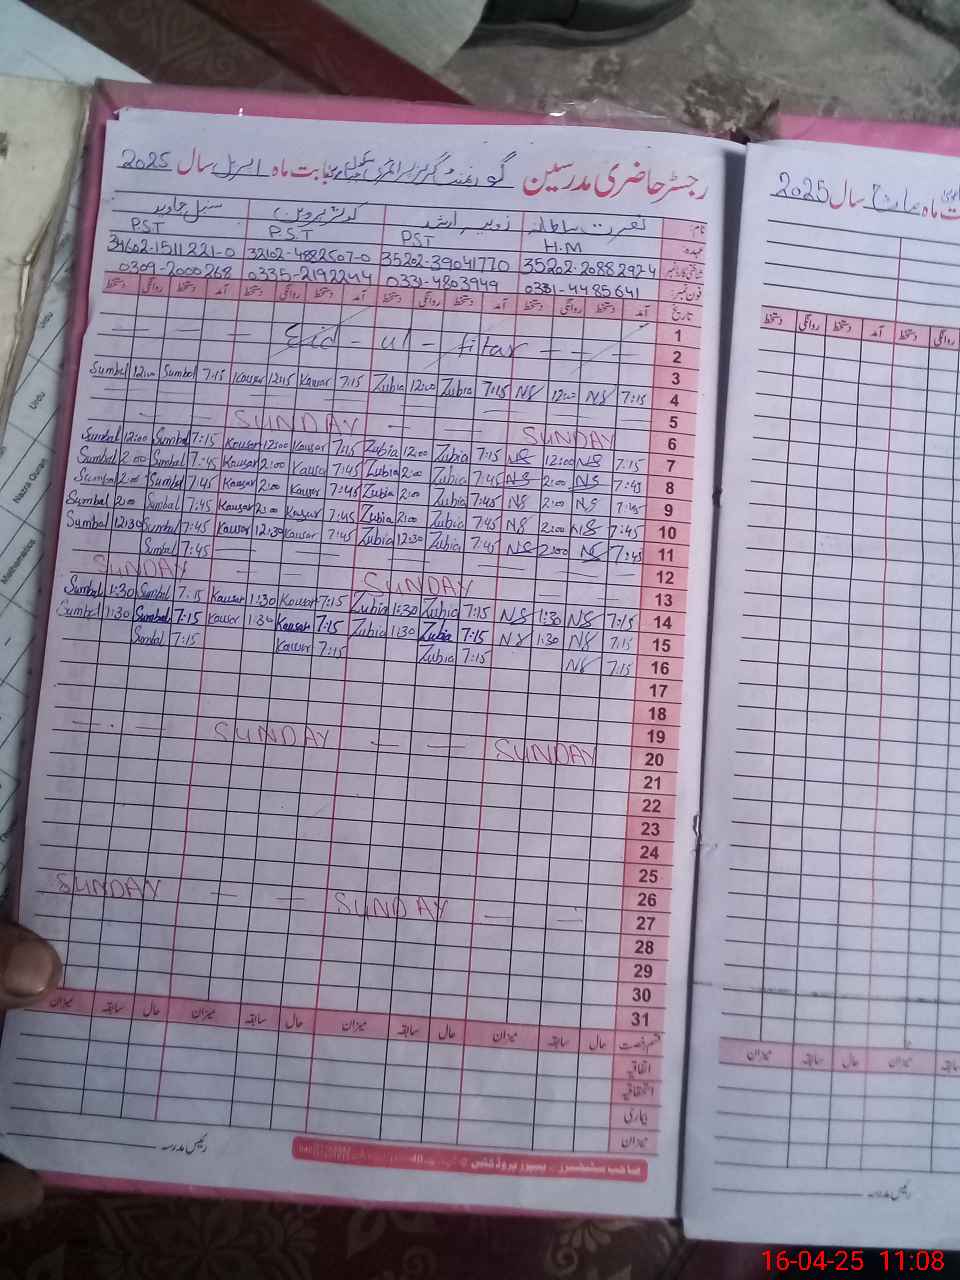 رجسٹر حاضری مدرسین گورنمنٹ گرلز پرائمری سکول بابت ماہ اپریل سال 2025
نام: نصرت سلطانہ زوبیہ ارشد کوثر پروین سنبل جاوید
عہدہ: H.M PST P.S.T P.S.T
شناختی کارڈ نمبر 35202-2088292-4 35202-3904177-0 32102-4882507-0 34602-1511221-0
فون نمبر: 0331-4485641 0331-4803949 0335-2192244 0309-2000268
تاریخ آمد دستخط روانگی دستخط آمد دستخط روانگی دستخط آمد دستخط روانگی دستخط آمد دستخط روانگی دستخط
1
Eid - ul - fitar - - - 2
Sumbal 12:00 Sumbal 7:15 Kausar 12:45 Kausar 7:15 Zubia 12:00 Zubia 7:15 NS 12:00 NS 7:15 3
4
SUNDAY 5
SUNDAY 6
Sumbal 12:00 Sumbal 7:15 Kausar 12:00 Kausar 7:15 Zubia 12:00 Zubia 7:15 NS 12:00 NS 7:15 7
Sumbal 2:00 Sumbal 7:45 Kausar 2:00 Kausar 7:45 Zubia 2:00 Zubia 7:45 NS 2:00 NS 7:45 8
Sumbal 2:00 Sumbal 7:45 Kausar 2:00 Kausar 7:45 Zubia 2:00 Zubia 7:45 NS 2:00 NS 7:45 9
Sumbal 2:00 Sumbal 7:45 Kausar 2:00 Kausar 7:45 Zubia 2:00 Zubia 7:45 NS 2:00 NS 7:45 10
Sumbal 12:30 Sumbal 7:45 Kausar 12:30 Kausar 7:45 Zubia 12:30 Zubia 7:45 NS 2:00 NS 7:45 11
Sumbal 7:45 12
SUNDAY SUNDAY 13
Sumbal 1:30 Sumbal 7:15 Kausar 1:30 Kausar 7:15 Zubia 1:30 Zubia 7:15 NS 1:30 NS 7:15 14
Sumbal 1:30 Sumbal 7:15 Kauser 1:30 Kausar 7:15 Zubia 1:30 Zubia 7:15 NS 1:30 NS 7:15 15
Sumbal 7:15 Kausar 7:15 Zubia 7:15 NS 7:15 16
17
18
SUNDAY 19
SUNDAY 20
21
22
23
24
25
SUNDAY 26
SUNDAY 27
28
29
30
31
قسم رخصت حال سابقہ میزان حال سابقہ میزان حال سابقہ میزان حال سابقہ میزان
اتفاقیہ
استحقاقیہ
بیماری
میزان
رئیس مدرسہ
ت ماہ مارچ سال 2025
روانگی دستخط آمد دستخط روانگی دستخط
سابقہ میزان حال سابقہ میزان
رئیس مدرسہ
Urdu
Urdu
Nazra Quran
Mathematics
16-04-25 11:08